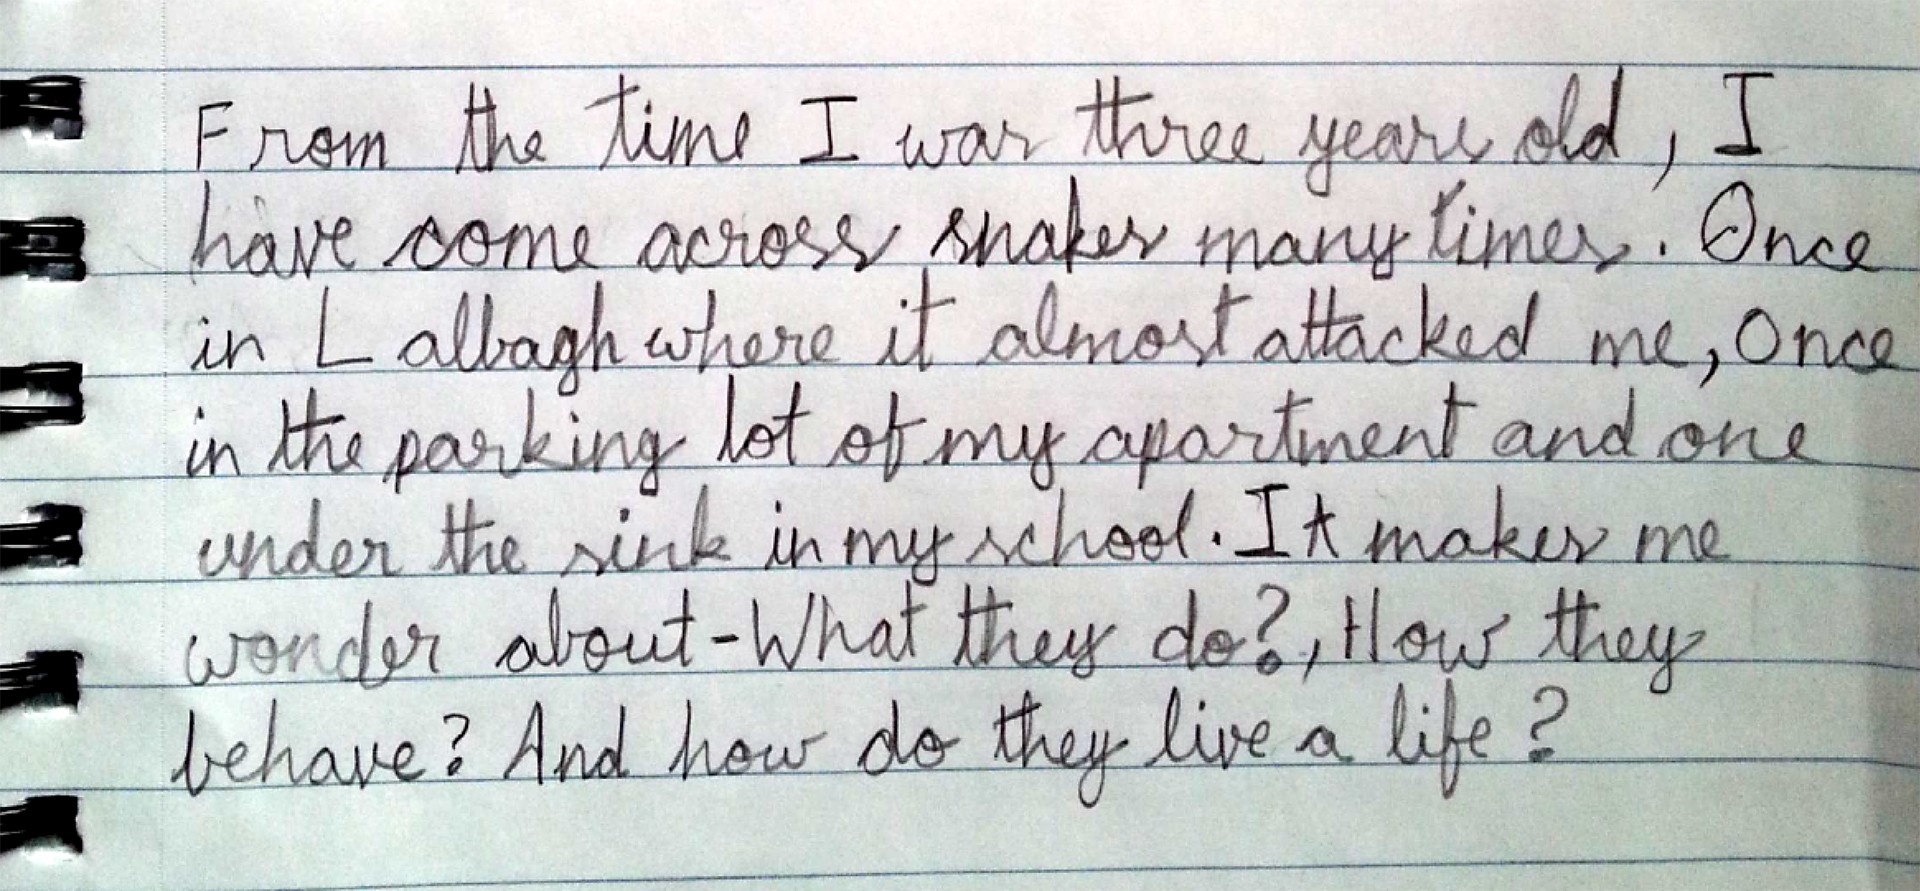 From the time I was three years old, I
have come across snakes many times. Once
in Lalbagh where it almost attacked me, Once
in the parking lot of my apartment and one
under the sink in my school. It makes me
wonder about-What they do?, How they
behave? And how do they live a life?